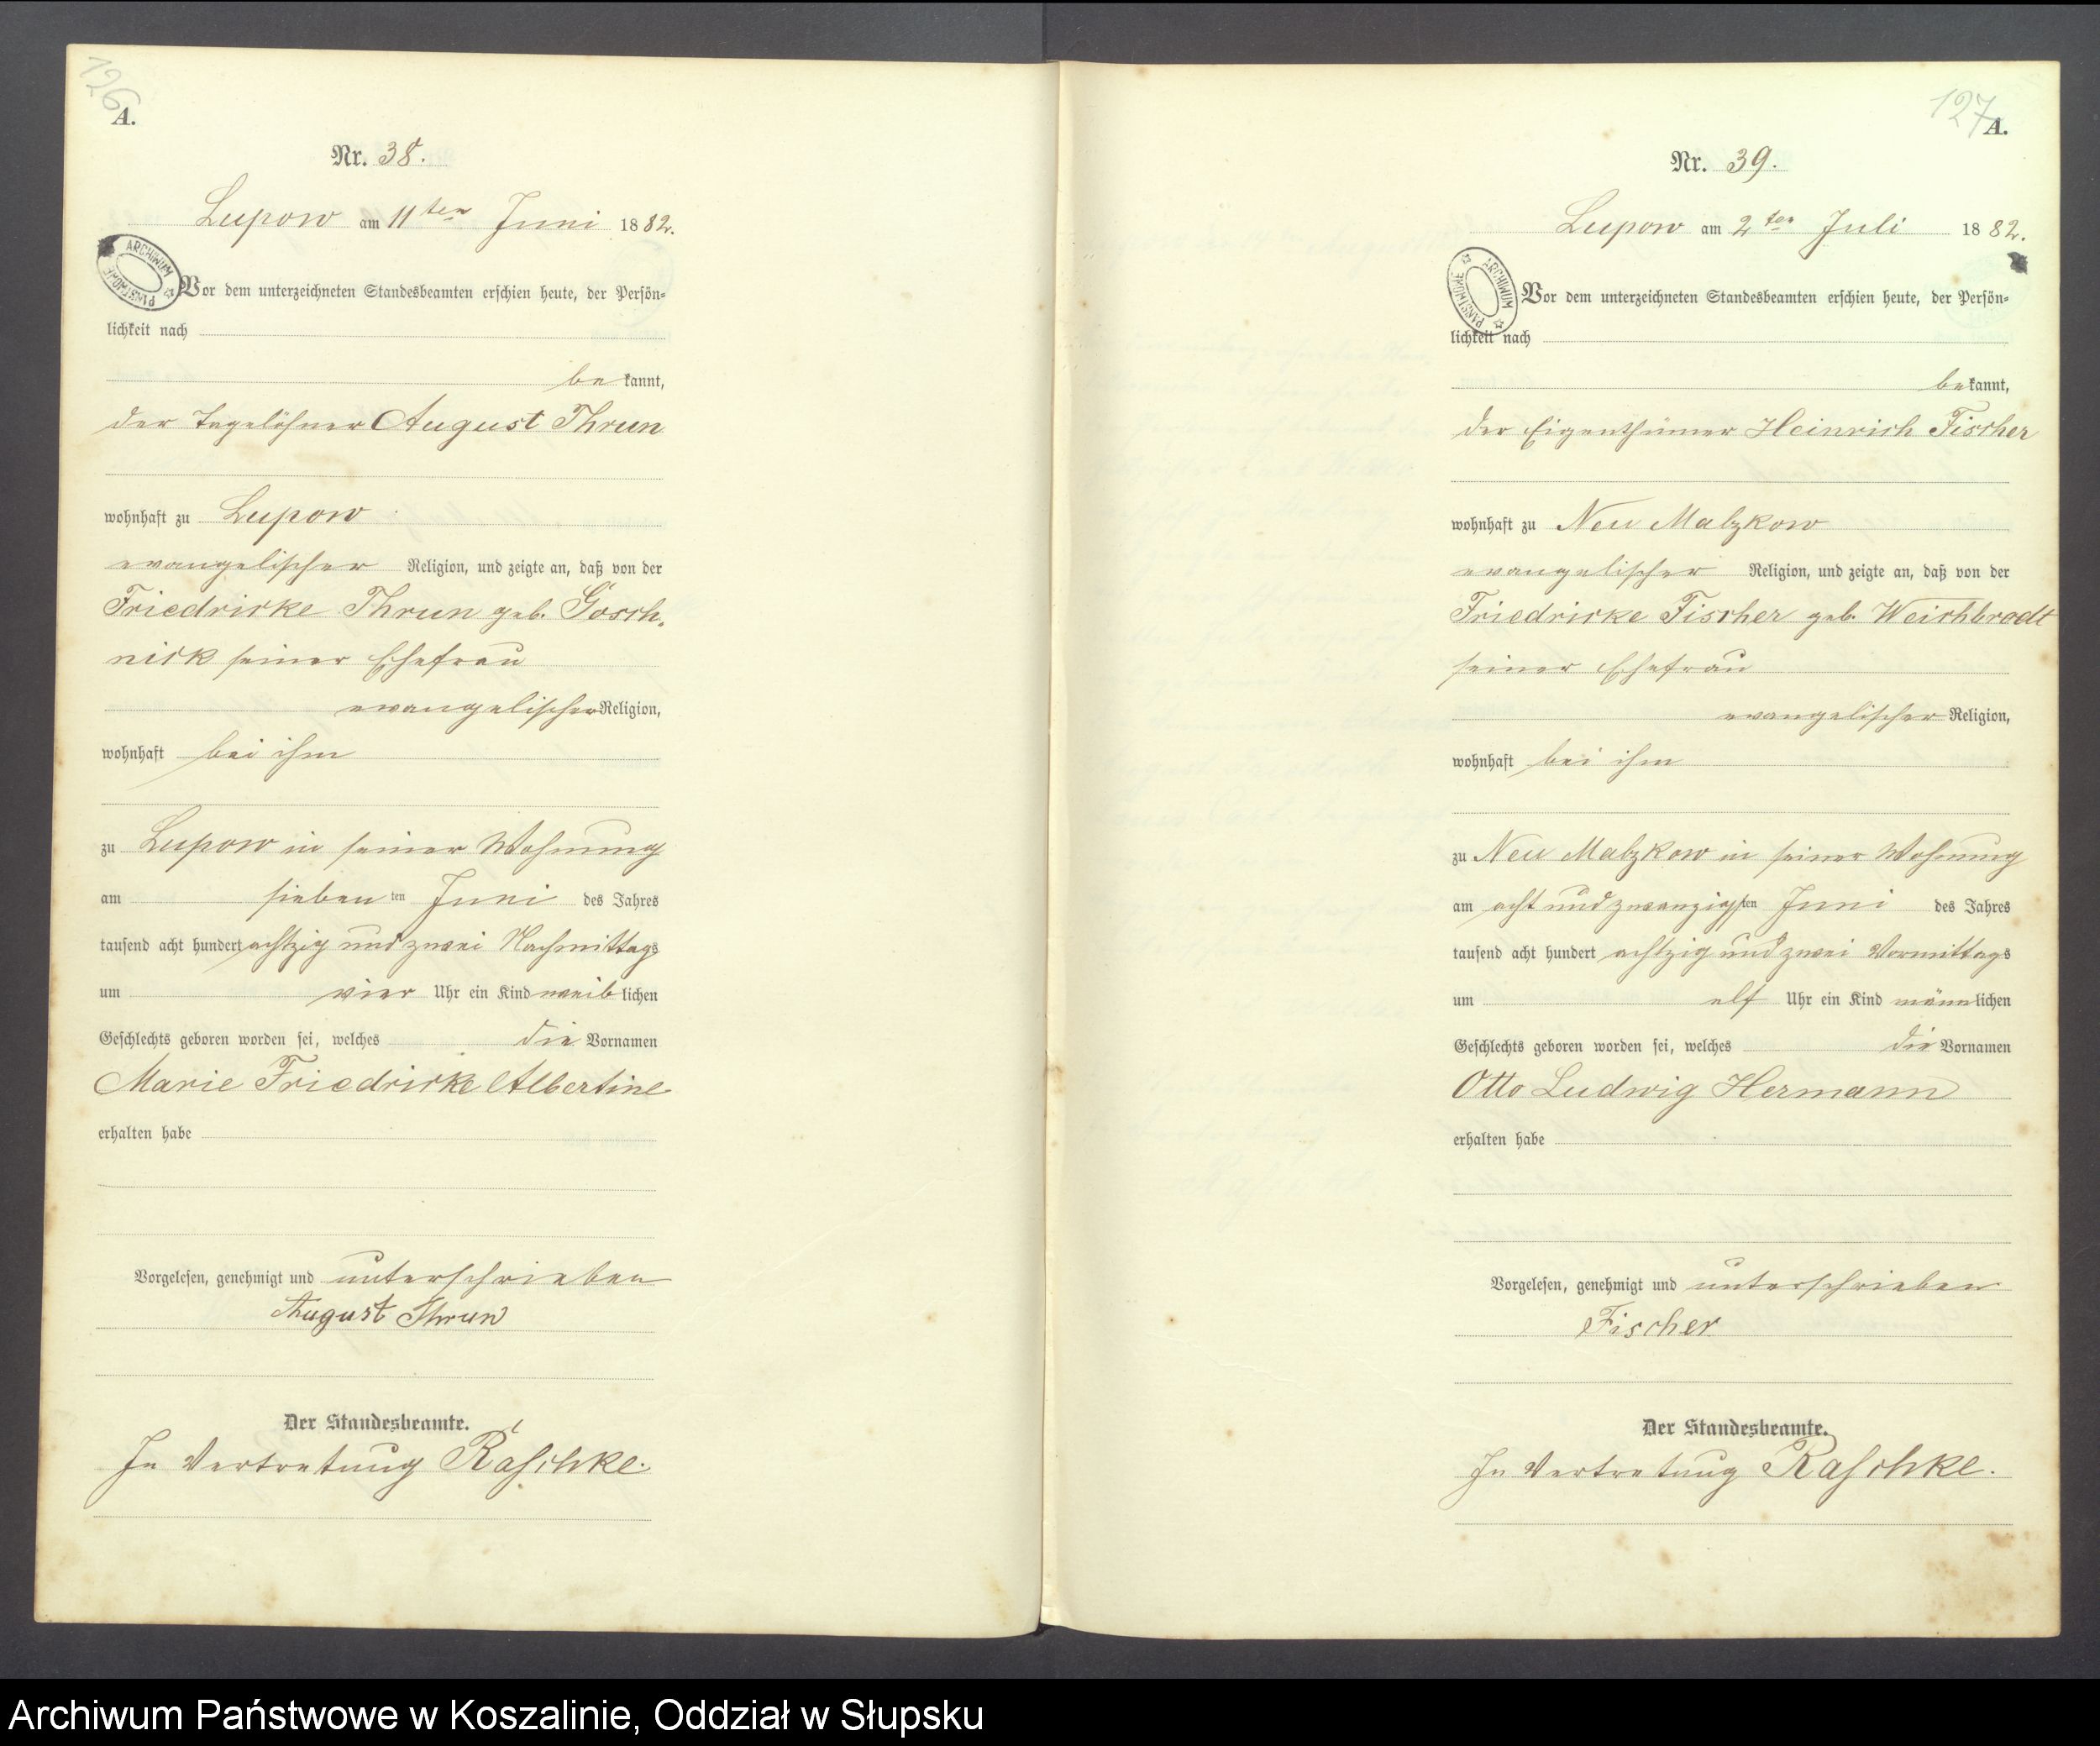 126
A.
Nr. 38.
Lupow am 11ten Juni 1882.
ARCHIWUM PAŃSTWOWE
Vor dem unterzeichneten Standesbeamten erschien heute, der Persön-
lichkeit nach
be kannt,
der Tagelöhner August Thrun
wohnhaft zu Lupow
evangelischer Religion, und zeigte an, daß von der
Friedricke Thrun geb. Gosch-
nick seiner Ehefrau
evangelischer Religion,
wohnhaft bei ihm
zu Lupow in seiner Wohnung
am sieben ten Juni des Jahres
tausend acht hundert achtzig und zwei Nachmittags
um vier Uhr ein Kind weib lichen
Geschlechts geboren worden sei, welches die Vornamen
Marie Friedricke Albertine
erhalten habe
Vorgelesen, genehmigt und unterschrieben
August Thrun
Der Standesbeamte.
In Vertretung Raschke.
127
A.
Nr. 39.
Lupow am 2ten Juli 1882.
ARCHIWUM PAŃSTWOWE
Vor dem unterzeichneten Standesbeamten erschien heute, der Persön-
lichkeit nach
be kannt,
der Eigenthümer Heinrich Fischer
wohnhaft zu Neu Malzkow
evangelischer Religion, und zeigte an, daß von der
Friedricke Fischer geb. Weichbrodt
seiner Ehefrau
evangelischer Religion,
wohnhaft bei ihm
zu Neu Malzkow in seiner Wohnung
am acht und zwanzigsten Juni des Jahres
tausend acht hundert achtzig und zwei Vormittags
um elf Uhr ein Kind männ lichen
Geschlechts geboren worden sei, welches die Vornamen
Otto Ludwig Hermann
erhalten habe
Vorgelesen, genehmigt und unterschrieben
Fischer
Der Standesbeamte.
In Vertretung Raschke.
Archiwum Państwowe w Koszalinie, Oddział w Słupsku